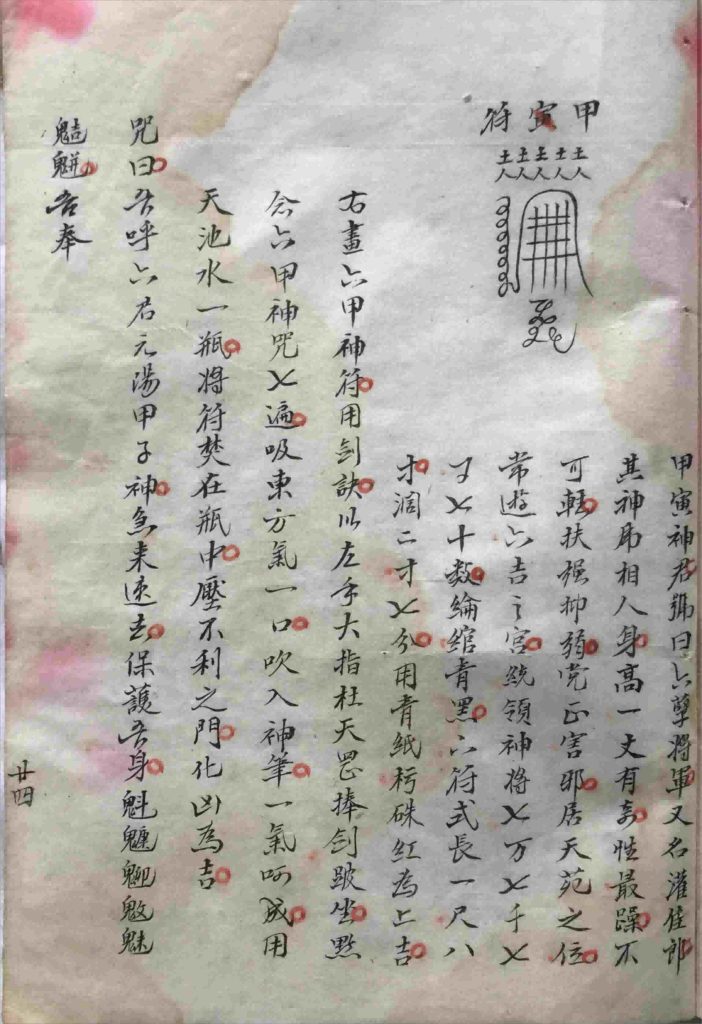 甲寅符
甲寅神君號曰六孽將軍又名灌佳郎
其神馬相人身高一丈有奇性最躁不
可輕扶强抑弱党正害邪居天苑之位
常遊六吉之宮統領神将〤万〤千〤
〤十数綸綰青黑六符式長一尺八
寸濶二寸〤分用青紙杇硃紅為上吉
右畫六甲神符用剑訣以左手大指杜天罡捧剑跛坐點
念六甲神咒〤遍吸東方氣一口吹入神筆一氣呵成用
天池水一瓶将符焚在瓶中壓不利之門化凶為吉
咒曰吾呼六君元湯甲子神急来速去保護吾身魁𩳐
魅
吾奉
廿四